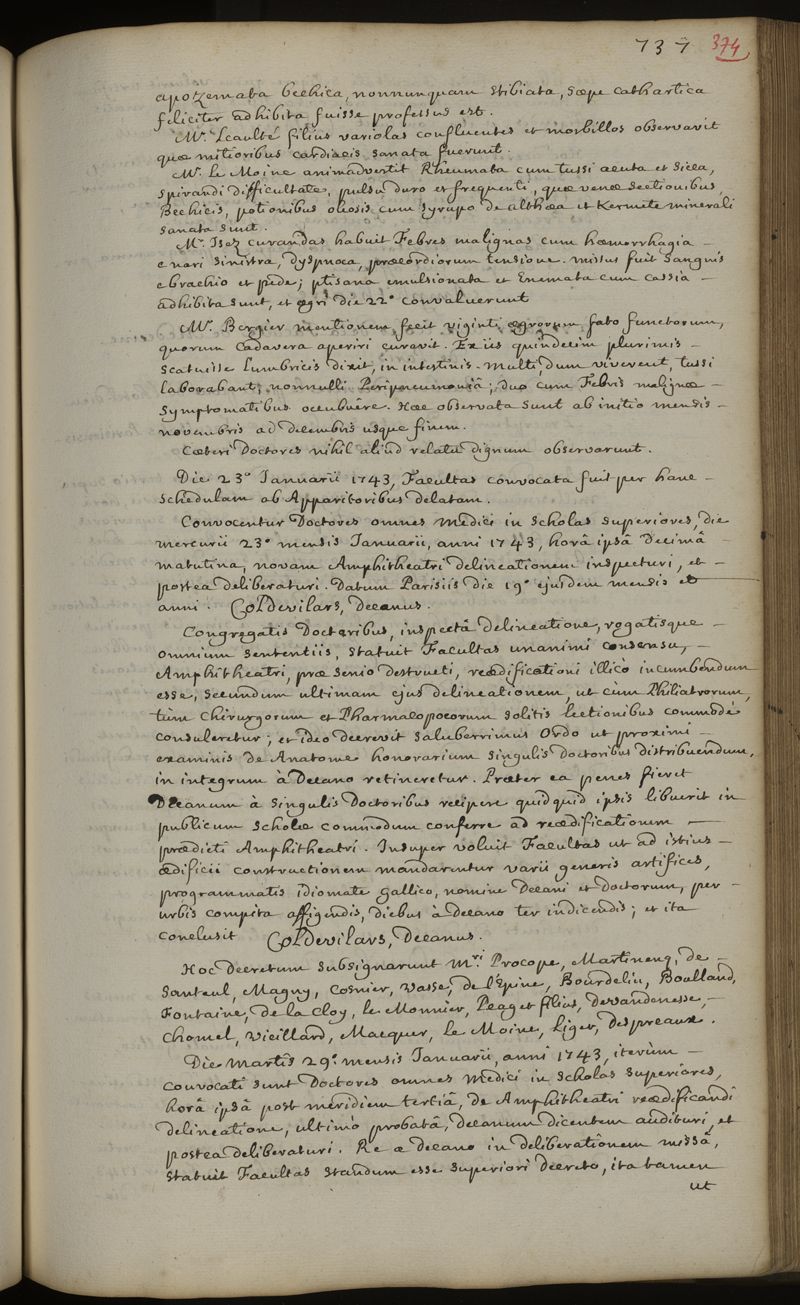 737 374
apozemata bechica, nonnunquam stibiata, sæpe cathartica
feliciter adhibita fuisse professus est.
Mr. Leaulté filius variolas confluentes et morbillos observavit
quæ mitioribus cardiacis sanata fuerunt.
Mr. Le Moine animadvertit Rheumata cum tussi acuta et sicca,
spirandi difficultate, pulsu duro et frequenti, quæ venæ sectionibus
Bechicis, potionibus oleosis cum syrupo de althæa et Kermete minerali
sanata sunt.
Mr. Isez curandas habuit Febres malignas cum hæmorrhagia –
e nari sinistra, dyspnoea, præcordiorum tensione. missus fuit sanguis
e brachio et pede; ptisana emulsionata et Enemata cum cassia –
adhibita sunt, et ægri die 22ª convaluerunt
Mr. Bergier mentionem fecit viginti ægrorum fato functorum,
quorum cadavera aperiri curavit. Ex iis quindecim plurimis –
scatuisse Lumbricis dixit, in intestinis. multi, dum viverent, tussi
laborabant; nonnulli Peripneumoniâ; duo cum Febris malignæ –
symptomatibus occubuêre. Hæc observata sunt ab initio mensis –
novembris ad decembris usque finem.
Cæteri Doctores nihil aliud relatu dignum observarunt.
Die 23ª Januarii 1743, Facultas convocata fuit per hanc –
schedulam ab Apparitoribus delatam.
Convocentur Doctores omnes medici in scholas superiores, die
mercurii 23ª mensis Januarii, anni 1743, horâ ipsâ decimâ –
matutina, novam Amphitheatri delineationem inspecturi, et –
postea deliberaturi. Datum Parisiis die 19ª ejusdem mensis et
anni. Col De vilars, Decanus.
Congregatis Doctoribus, inspectâ delineatione, rogatisque –
omnium sententiis, statuit Facultas unanimi consensu, –
Amphitheatri, præ senio destructi, reædificationi illicò incumbendum
esse, secundum ultimam ejus delineationem, ut cum Philiatrorum,
tùm chirurgorum et Pharmacopoeorum solitis lectionibus commodè
consuleretur; et ideo decrevit saluberrimus Ordo ut proximi –
examinis de Anatome honorarium singulis doctoribus distribuendum,
in integrum à Decano retineretur. Præter ea penes fieret
Decanum à singulis Doctoribus recipere quidquid ipsis libuerit in
publicum scholæ commodum conferre ad reædificationem –
prædicti Amphitheatri. Insuper voluit Facultas ut ad istius –
ædificii constructionem mandarentur varii generis artifices,
programmatis idiomate gallico, nomine Decani et doctorum, per –
urbis compita affigendis, diebus à Decano ter indicendis; et ita
conclusit Col De vilars, Decanus.
Hoc Decretum subsignarunt mri. Procope, Martinenq, de –
Santeul, Magny, Cosnier, Vasse, de l'Epine, Bourdelin, Boulland,
Fontaine, de la Cloy, le Monnier, Peaget filius, Devandenesse, –
Chomel, Vieillard, Macquer, Le Moine, Liger, Despreaux.
Die Martis 29ª mensis Januarii, anni 1743, iterùm –
convocati sunt Doctores omnes medici in scholas superiores,
horâ ipsâ post meridiem tertiâ, de Amphitheatri reædificandi
delineatione, ultimò probatâ, decanum dicentem audituri, et
postea deliberaturi. Re a decano in deliberationem missâ,
statuit Facultas standum esse superiori decreto, ita tamen
ut